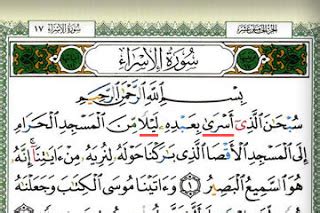 سُورَةُ الإِسْرَاءِ ١٧
الجزء الخامس عشر
سُورَةُ الإِسْرَاءِ
بِسْمِ اللَّهِ الرَّحْمَٰنِ الرَّحِيمِ
سُبْحَانَ الَّذِي أَسْرَىٰ بِعَبْدِهِ لَيْلًا مِّنَ الْمَسْجِدِ الْحَرَامِ
إِلَى الْمَسْجِدِ الْأَقْصَا الَّذِي بَارَكْنَا حَوْلَهُ لِنُرِيَهُ مِنْ ءَايَاتِنَا إِنَّهُ
هُوَ السَّمِيعُ الْبَصِيرُ ١ وَءَاتَيْنَا مُوسَى الْكِتَابَ وَجَعَلْنَاهُ